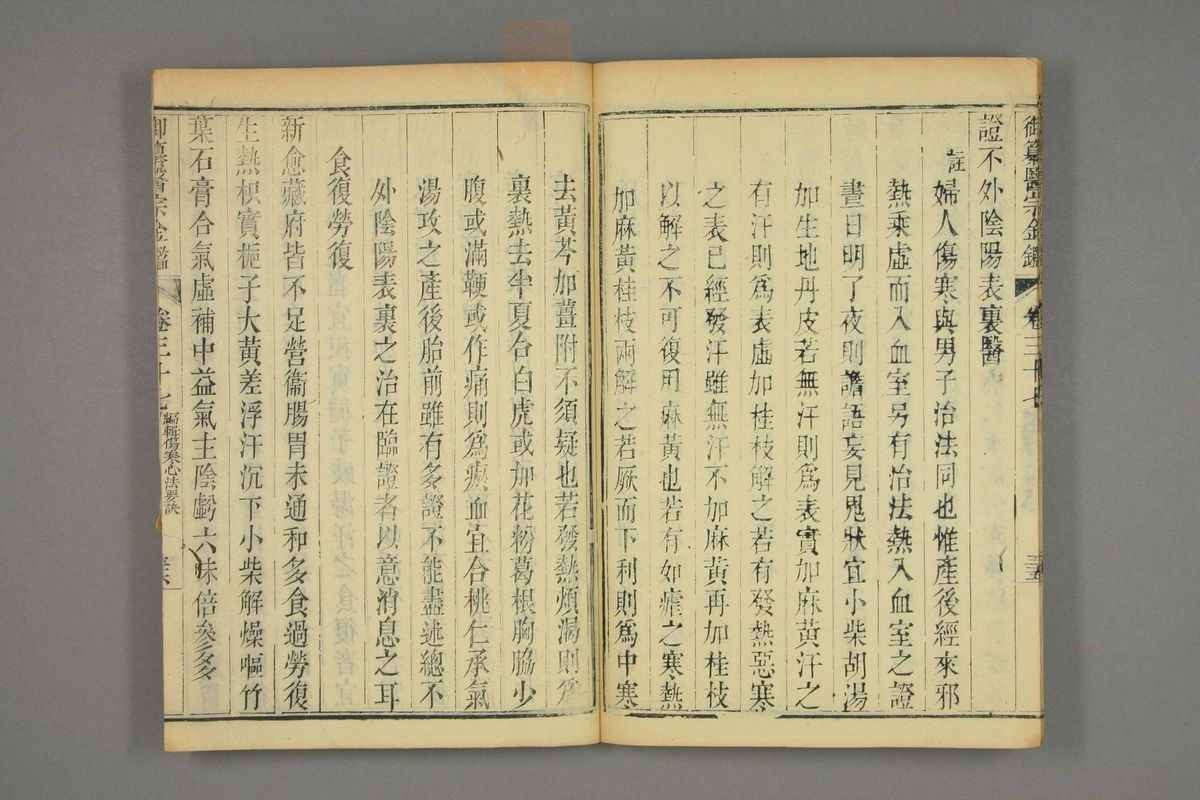 御纂醫宗金鑑 卷三十七 三五
證不外陰陽表裏醫
註
婦人傷寒與男子治法同也惟產後經來邪
熱乘虛而入血室另有治法熱入血室之證
晝日明了夜則譫語妄見鬼狀宜小柴胡湯
加生地丹皮若無汗則爲表實加麻黃汗之
有汗則爲表虛加桂枝解之若有發熱惡寒
之表已經發汗雖無汗不加麻黃再加桂枝
以解之不可復用麻黃也若有如瘧之寒熱
加麻黃桂枝兩解之若厥而下利則爲中寒
去黃芩加薑附不須疑也若發熱煩渴則爲
裏熱去半夏合白虎或加花粉葛根胸脇少
腹或滿鞕或作痛則爲瘀血宜合桃仁承氣
湯攻之產後胎前雖有多證不能盡述總不
外陰陽表裏之治在臨證者以意消息之耳
食復勞復
新愈藏府皆不足營衞腸胃未通和多食過勞復
生熱枳實梔子大黃差浮汗沉下小柴解燥嘔竹
葉石膏合氣虛補中益氣主陰虧六味倍參多
御纂醫宗金鑑 卷三十七 編輯傷寒心法要訣 三六